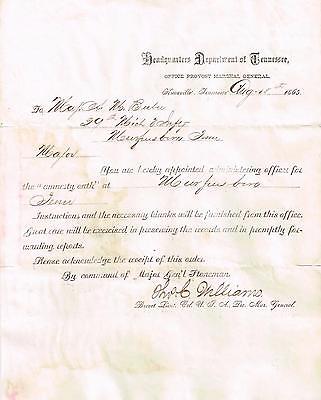 Headquarters Department of Tennessee,
OFFICE PROVOST MARSHAL GENERAL,
Knoxville, Tennessee, Aug 1865.
To Maj
29th Mich
Murfreesboro Tenn
Major
You are hereby appointed administering officer for
the "amnesty oath" at Murfreesboro
Tenn
Instructions and the necessary blanks will be furnished from this office.
Great care will be exercised in preserving the records and promptly for-
warding reports.
Please acknowledge the receipt of this order.
By command of Major Gen'l Stoneman.
Williams
Brevet Lieut. Col. U. S. A., Pro. Mar. General.